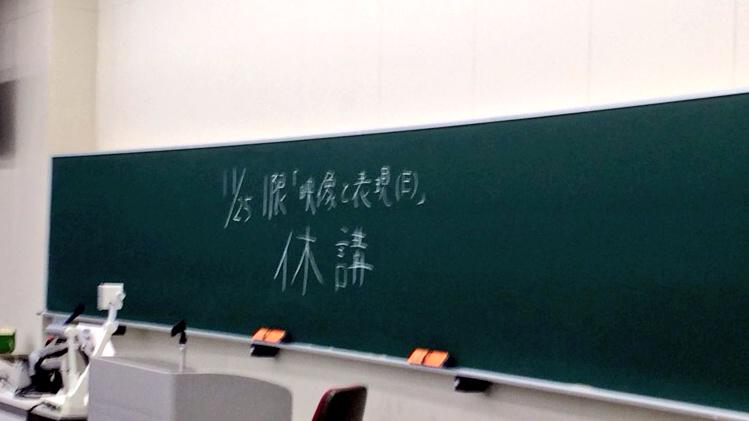 11/25 1限「映像と表現(E)」
休講